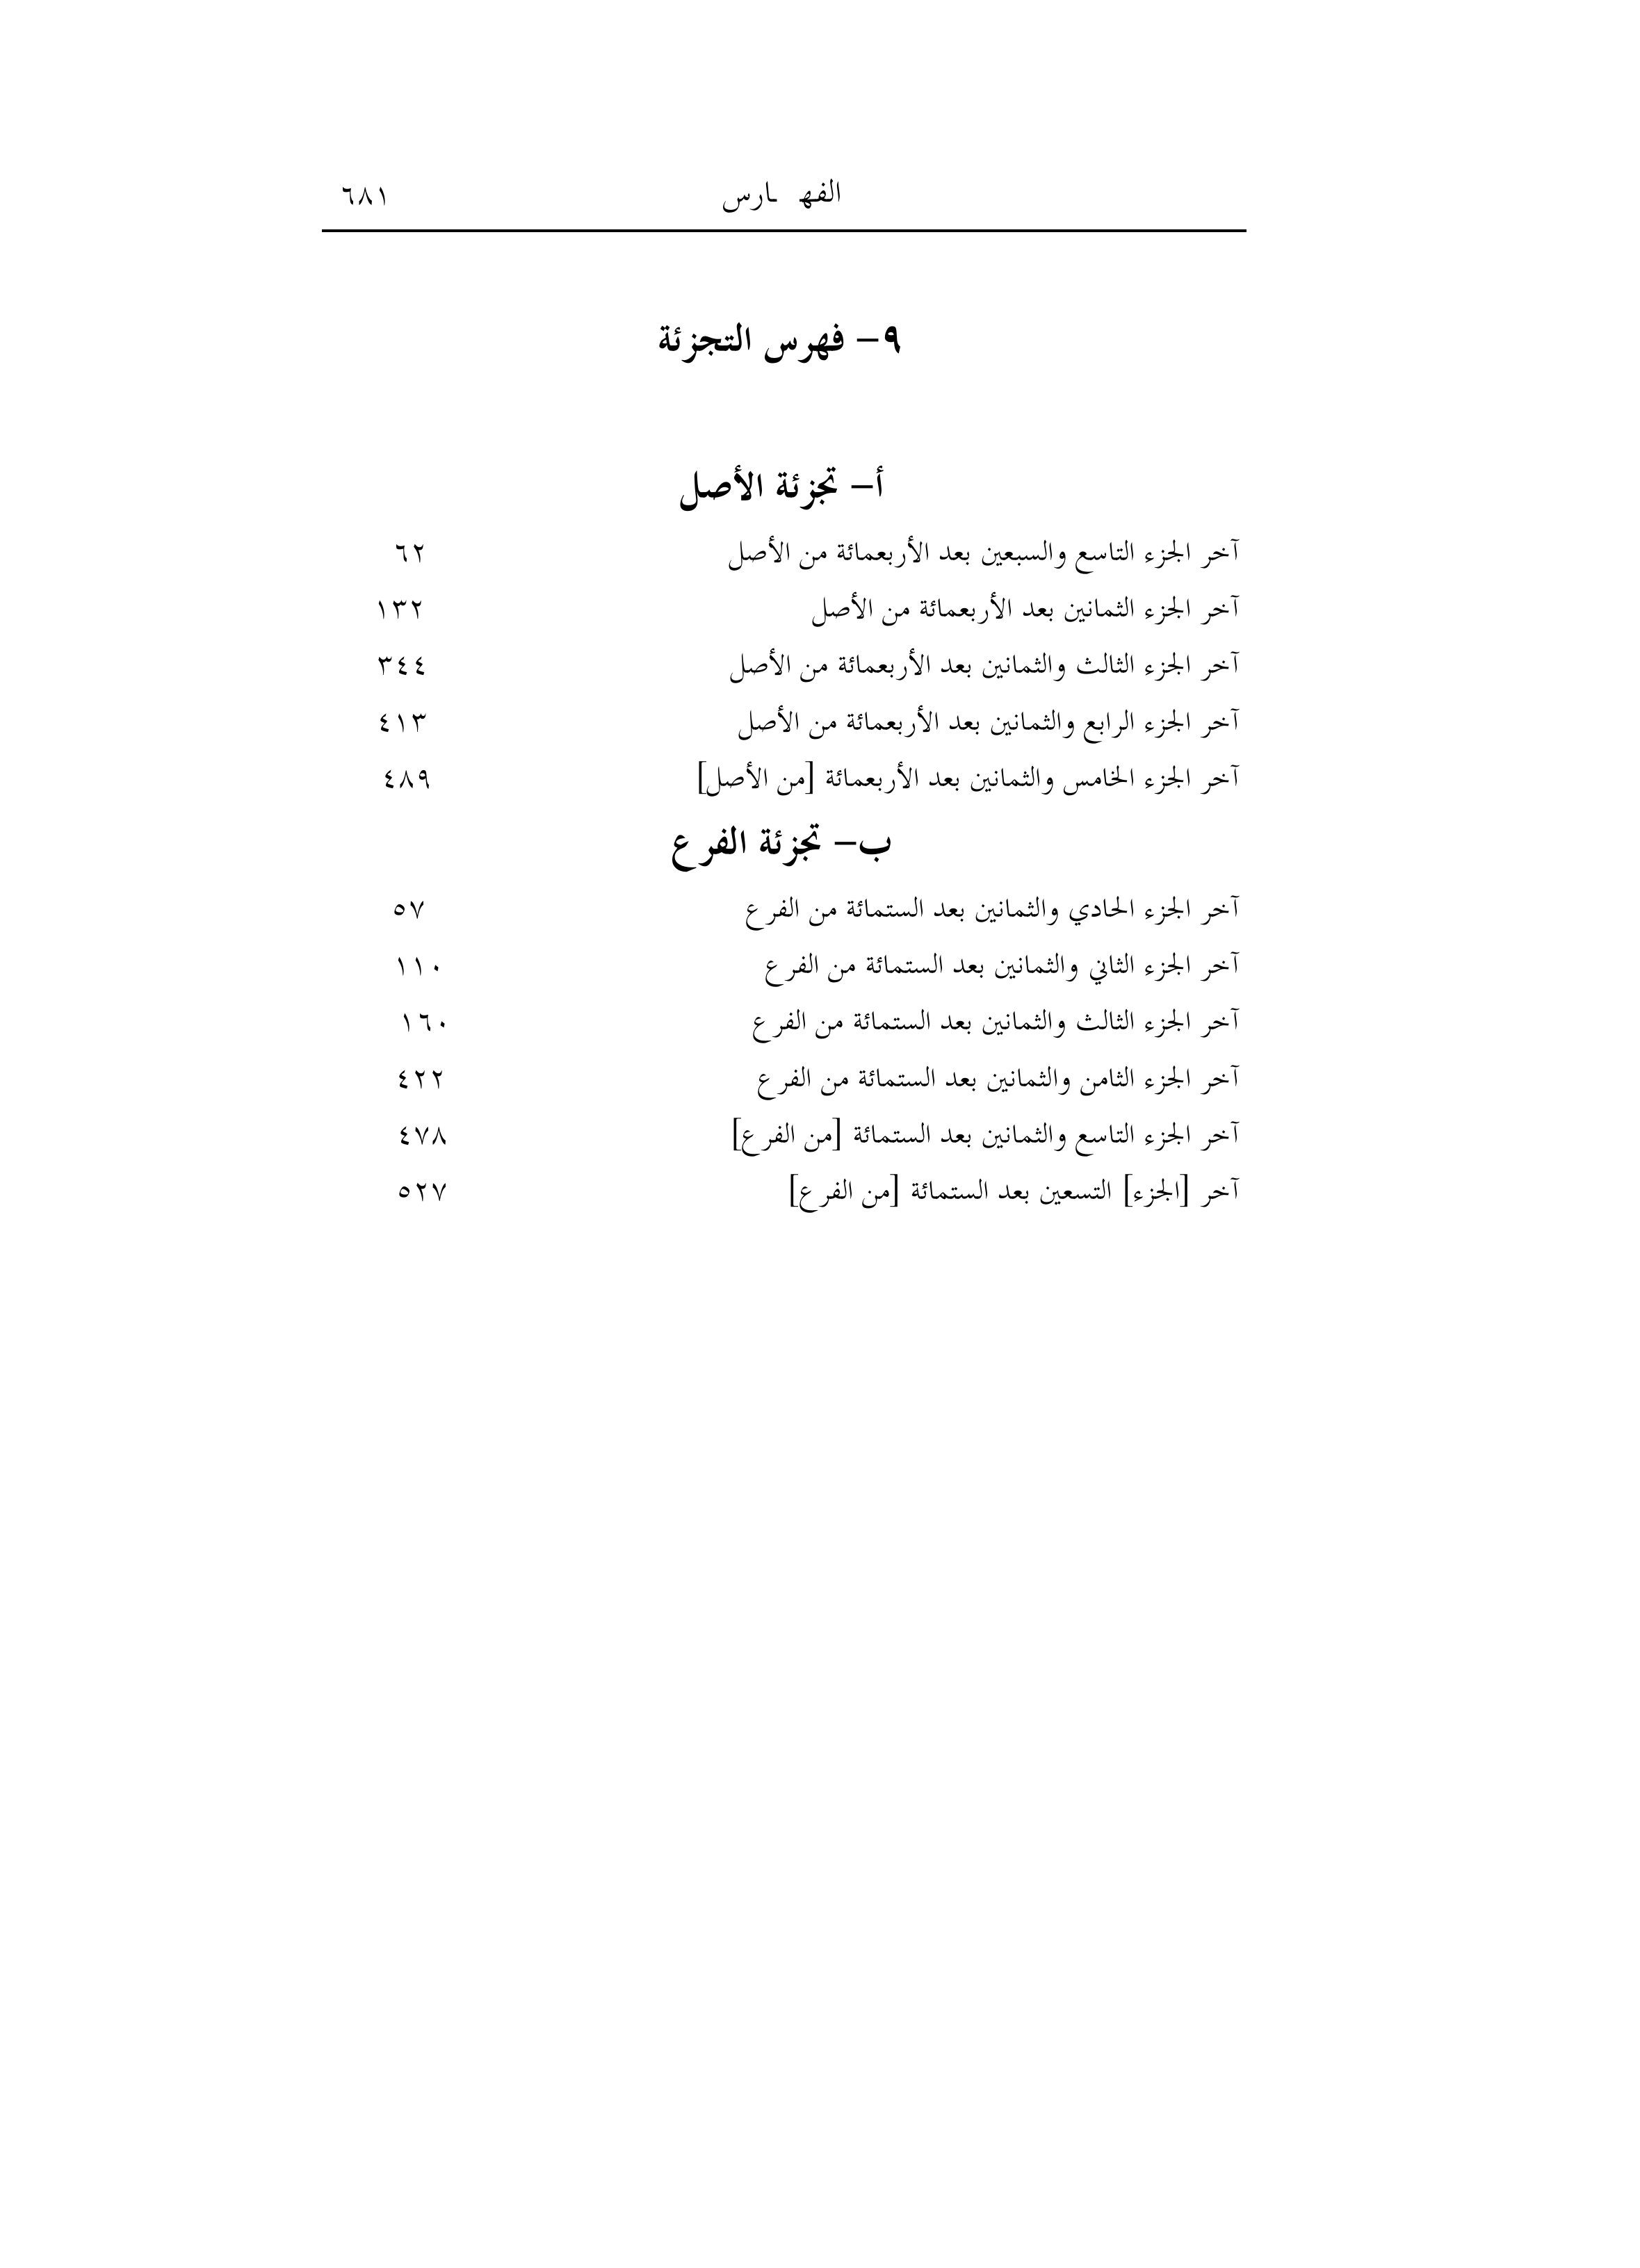 الفهـارس ٦٨١
٩– فهرس التجزئة
أ– تجزئة الأصل
آخر الجزء التاسع والسبعين بعد الأربعمائة من الأصل ٦٢
آخر الجزء الثمانين بعد الأربعمائة من الأصل ١٣٢
آخر الجزء الثالث والثمانين بعد الأربعمائة من الأصل ٣٤٤
آخر الجزء الرابع والثمانين بعد الأربعمائة من الأصل ٤١٣
آخر الجزء الخامس والثمانين بعد الأربعمائة [من الأصل] ٤٨٩
ب– تجزئة الفرع
آخر الجزء الحادي والثمانين بعد الستمائة من الفرع ٥٧
آخر الجزء الثاني والثمانين بعد الستمائة من الفرع ١١٠
آخر الجزء الثالث والثمانين بعد الستمائة من الفرع ١٦٠
آخر الجزء الثامن والثمانين بعد الستمائة من الفرع ٤٢٢
آخر الجزء التاسع والثمانين بعد الستمائة [من الفرع] ٤٧٨
آخر [الجزء] التسعين بعد الستمائة [من الفرع] ٥٢٧